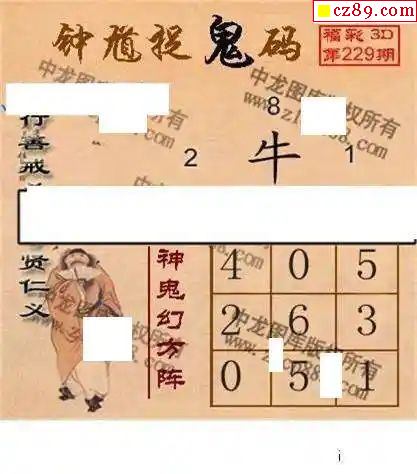 cz89.com
钟馗捉鬼码
福彩3D
第229期
中龙图库版权所有
8
2 牛 1
行善戒
贤仁义
神鬼幻方阵
4 0 5
2 6 3
0 5 1